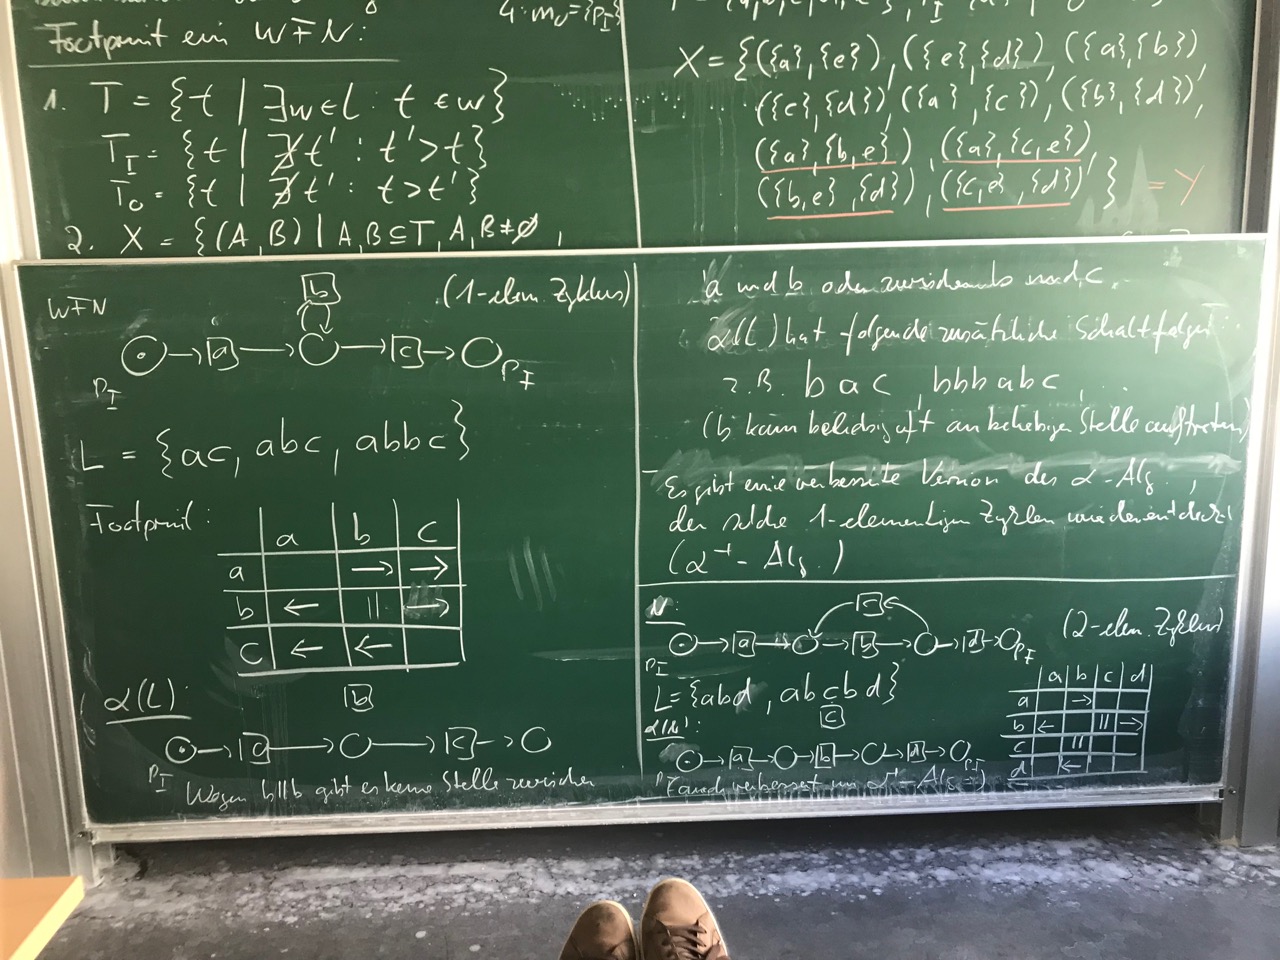 4. m₀ = {p_I}
Footprint ein WFN:
1. T = {t | ∃w∈L : t ∈ w}
T_I = {t | ∄t' : t' > t}
T_O = {t | ∄t' : t > t'}
2. X = {(A,B) | A,B ⊆ T, A,B ≠ ∅,
X = {({a},{e}), ({e},{d}), ({a},{b})
({c},{d}), ({a},{c}), ({b},{d}),
({a},{b,e}), ({a},{c,e}),
({b,e},{d}), ({c,e},{d}) } = Y
WFN
b
(1-elem. Zyklus)
a c
p_I p_I
L = {ac, abc, abbc}
Footprint:
a b c
a → →
b ← || →
c ← ←
α(L):
b
a c
p_I
Wegen b||b gibt es keine Stelle zwischen
a und b oder zwischen b und c.
α(L) hat folgende zusätzliche Schaltfolgen:
z.B. bac, bbbabc, ...
(b kann beliebig oft an beliebiger Stelle auftreten)
Es gibt eine verbesserte Version des α-Alg.,
der solche 1-elementigen Zyklen wiederentdeckt
(α⁺-Alg.)
N:
c
(2-elem. Zyklus)
a b d
p_I p_I
L = {abd, abcbd}
c
a b c d
a →
b ← || →
c ||
d ←
a b d
p_I p_I
auch verbessert im α⁺-Alg.